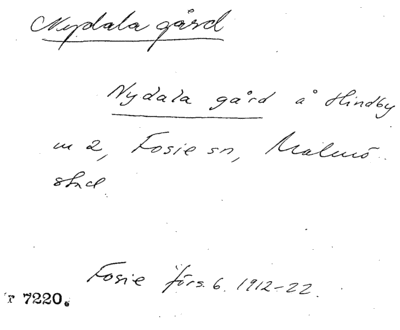 Nydala gård
Nydala gård å Hindby
m 2, Fosie sn, Malmö
stad
Fosie förs. b. 1912-22.
r 7220.